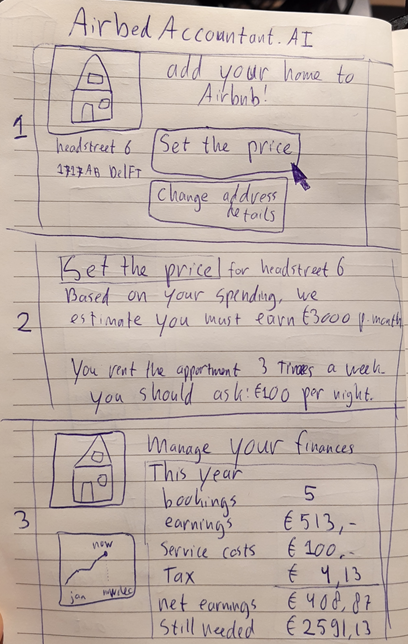 Airbed Accountant.AI
1
add your home to
Airbnb!
headstreet 6
1717AB Delft
Set the price
Change address
details
2
Set the price for headstreet 6
Based on your spending, we
estimate you must earn €3000 p. month
You rent the appartment 3 Times a week
you should ask: €100 per night.
3
Manage your finances
This year
bookings 5
earnings € 513,-
Service costs € 100,-
Tax € 4,13
net earnings € 408,87
Still needed € 2591,13
now
jan